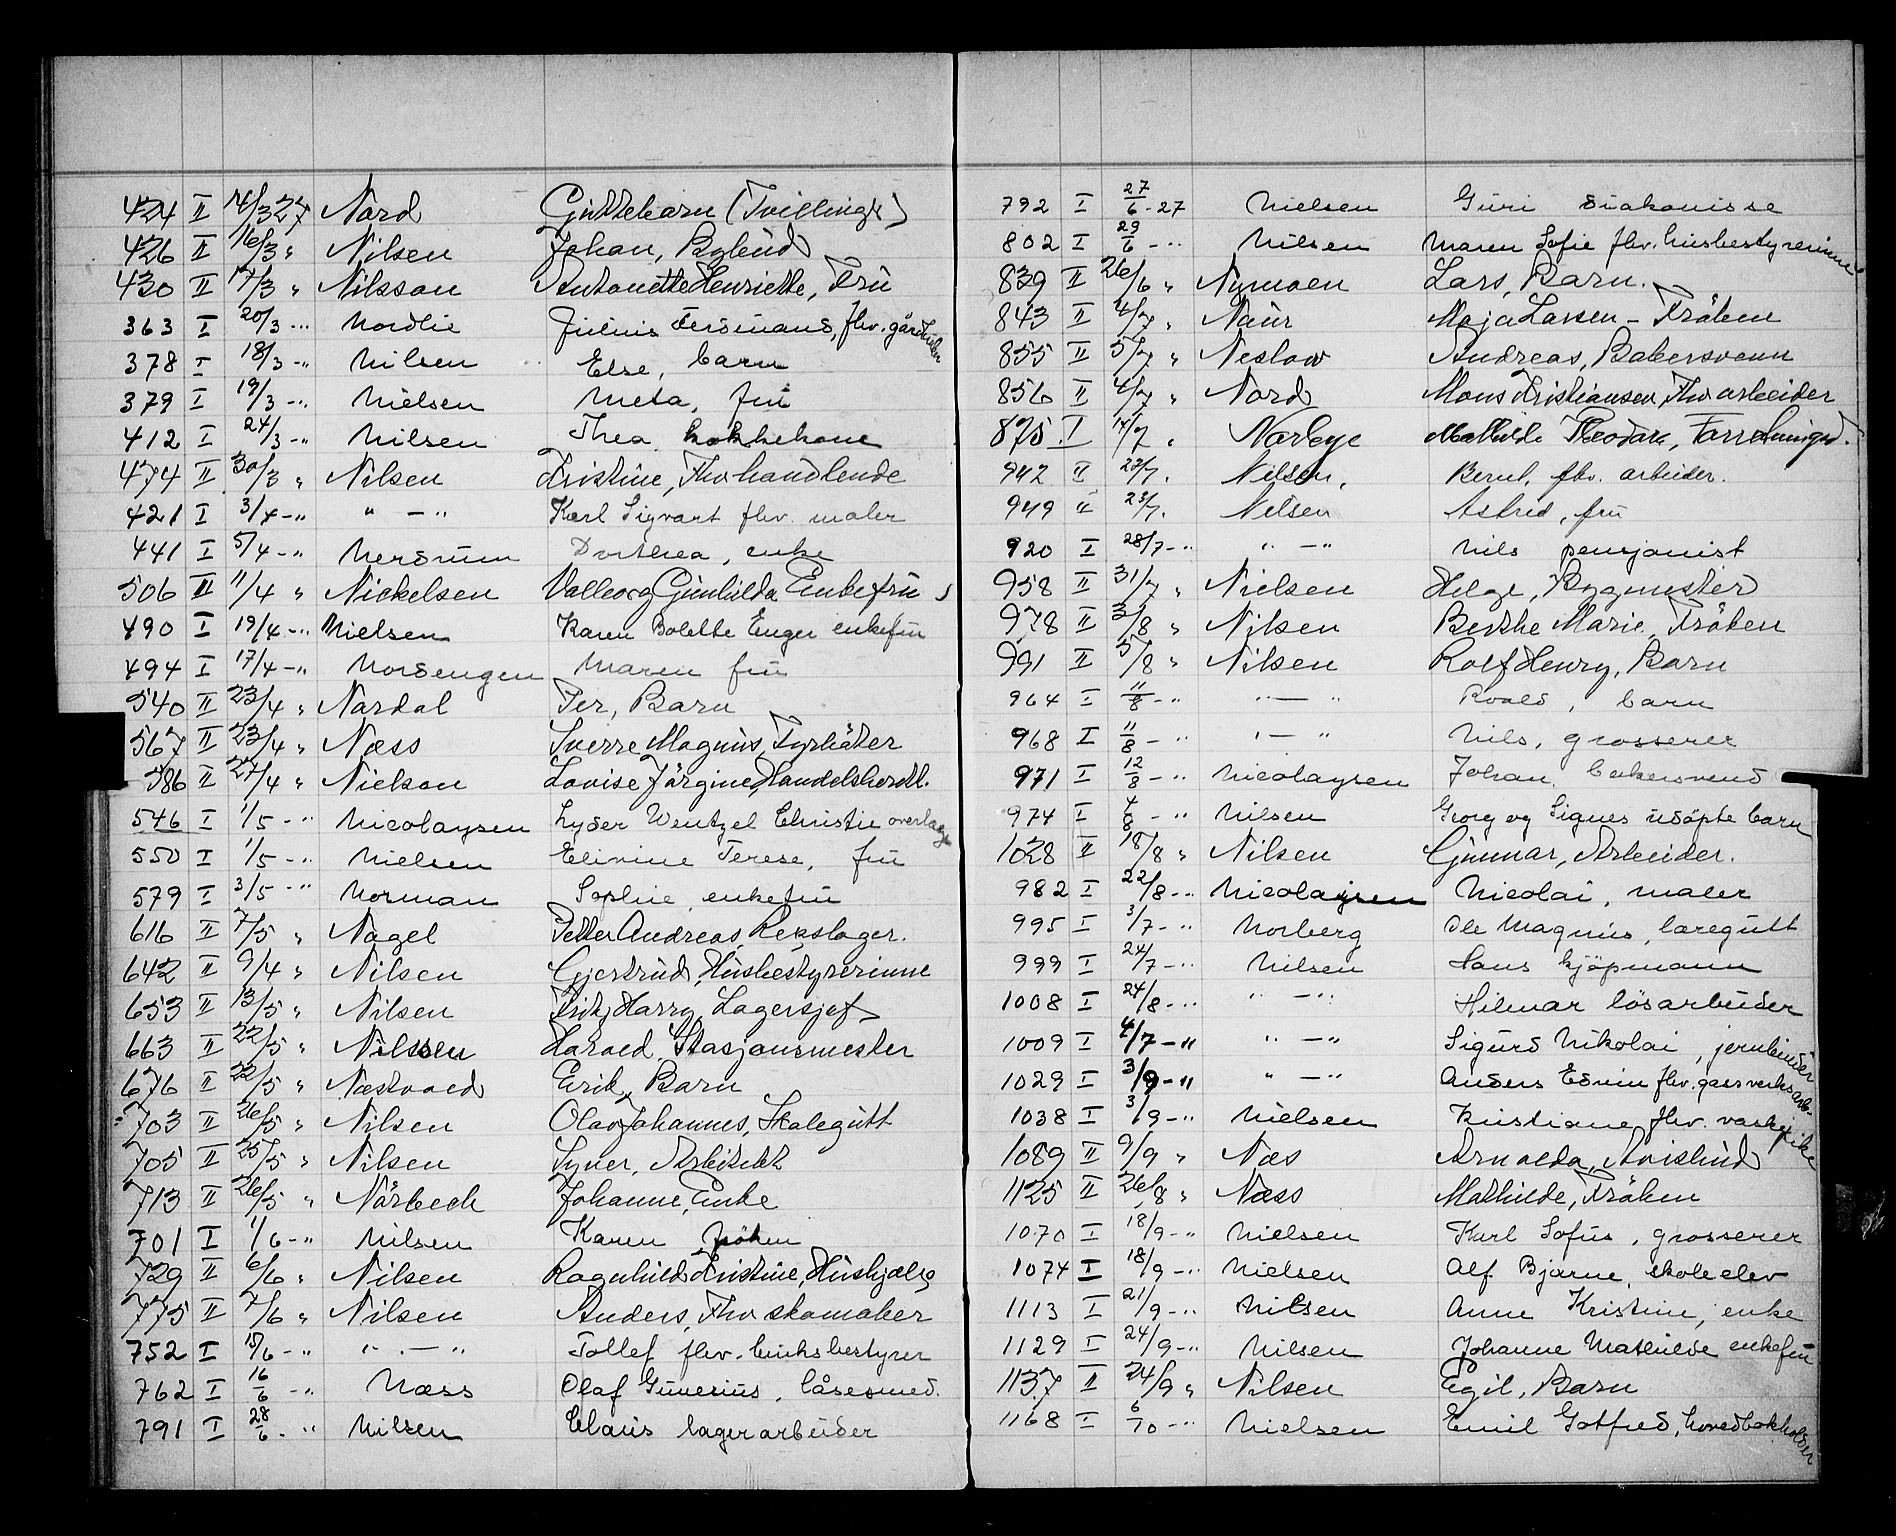 424 II 14/3 27 Nord Guttebarn (Tvilling)
426 II 16/3 " Nilsen Johan, Bybud
430 II 17/3 " Nilsson Antonette Henriette, Fru
363 I 20/3 -" Nordlie Julius Ferdinand, fhv. gårdbruker
378 I 18/3 -" Nilsen Else, barn
379 I 19/3 -" Nielsen Meta, fru
412 I 24/3 -" Nilsen Thea kokkekone
474 II 30/3 " Nilsen Kristine, Fhv handlende
421 I 3/4 -" " - " Karl Sigvart fhv. maler
441 I 5/4 -" Nersrum Dorthea, enke
506 II 11/4 " Nickelsen Valborg Gunhilda Enkefru
490 I 19/4 -" Nielsen Karen Bolette Enger enkefru
494 I 17/4 -" Nordengen Maren fru
540 II 23/4 " Nardal Per, Barn
567 II 23/4 " Næss Sverre Magnus, Fyrbøter
586 II 27/4 " Nielsen Lovise Jørgine, Handelsbestl.
546 I 1/5 -" Nicolaysen Lyder Wentzel Christie overlæge
550 I 1/5 -" Nielsen Elivine Terese, fru
579 I 3/5 -" Norman Sophie enkefru
616 II 7/5 " Nagel Petter Andreas, Repslager.
642 II 9/4 " Nilsen Gjertrud, Husbestyrerinne
653 II 13/5 " Nilsen Fritz Harry, Lagersjef
663 II 22/5 " Nilssen Harald, Stasjonsmester
676 II 22/5 " Næstvold Erik, Barn
703 II 26/5 " Nilsen Olav Johannes, Skolegutt
705 II 25/5 " Nilsen Syver, Arkitekt
713 II 26/5 " Nörbech Johanne, Enke
701 I 1/6 -" Nilsen Karen frøken
729 II 6/6 " Nilsen Ragnhild Kristine, Hushjælp
775 II 7/6 " Nilsen Anders, Fhv skomaker
752 I 15/6 -" " - " Tollef fhv. bruksbestyrer
762 I 16/6 -" Næss Olaf Gunerius, låsesmed.
791 I 28/6 -" Nilsen Claus lagerarbeider
792 I 27/6 -27 Nielsen Guri diakonisse
802 I 29/6 -" Nilsen Maren Sofie fhv. husbestyrerinne
839 II 26/6 " Nymoen Lars, Barn.
843 II 4/7 " Naur Maja Larsen - Frøken
855 II 5/7 " Neslow Andreas, Bakersvenn
856 II 4/7 " Nord Mons Kristiansen, Fhv arbeider
875 I 14/7 " Norbye Mathilde Theodora,
942 II 23/7. Nilsen, Bernt, fhv. arbeider.
949 II 23/7. Nilsen Astrid, fru
920 I 28/7 -" " - " Nils pensjonist
958 II 31/7 " Nielsen Helge, Byggmester
978 II 3/8 " Nilsen Berthe Marie, Frøken
991 II 5/8 " Nilsen Rolf Henry, Barn
964 I 11/8 -" " - " Roald, barn
968 I 11/8 -" " - " Nils, grosserer
971 I 12/8 -" Nicolaysen Johan bakersvend
974 I 4/8 -" Nilsen Georg og Signes udøpte barn
1028 II 18/8 " Nilsen Gunnar, Arbeider.
982 I 22/8 -" Nicolaysen Nicolai, maler
995 I 3/7 -" Norberg Ole Magnus, læregutt
999 I 24/7 -" Nilsen Hans kjøpmann
1008 I 24/8 -" " - " Hilmar løsarbeider
1009 I 4/7 -" " - " Sigurd Nikolai, jernbinder
1029 I 3/9 -" " - " Anders Edvin fhv. gassverksarb.
1038 I 3/9 -" Nielsen Kristiane fhv. vaskepike
1089 II 9/9 " Næs Arnolda, Avisbud
1125 II 26/8 " Næss Mathilde, Frøken
1070 I 18/9 -" Nielsen Karl Sofus, grosserer
1074 I 18/9 -" Nielsen Alf Bjarne, skoleelev
1113 I 21/9 -" Nilsen Anne Kristine, enke
1129 I 24/9 -" Nilsen Johanne Mathilde enkefru
1137 II 24/9 " Nilsen Egil, Barn
1168 I 6/10 -" Nielsen Emil Gotfred, hovedbokholder